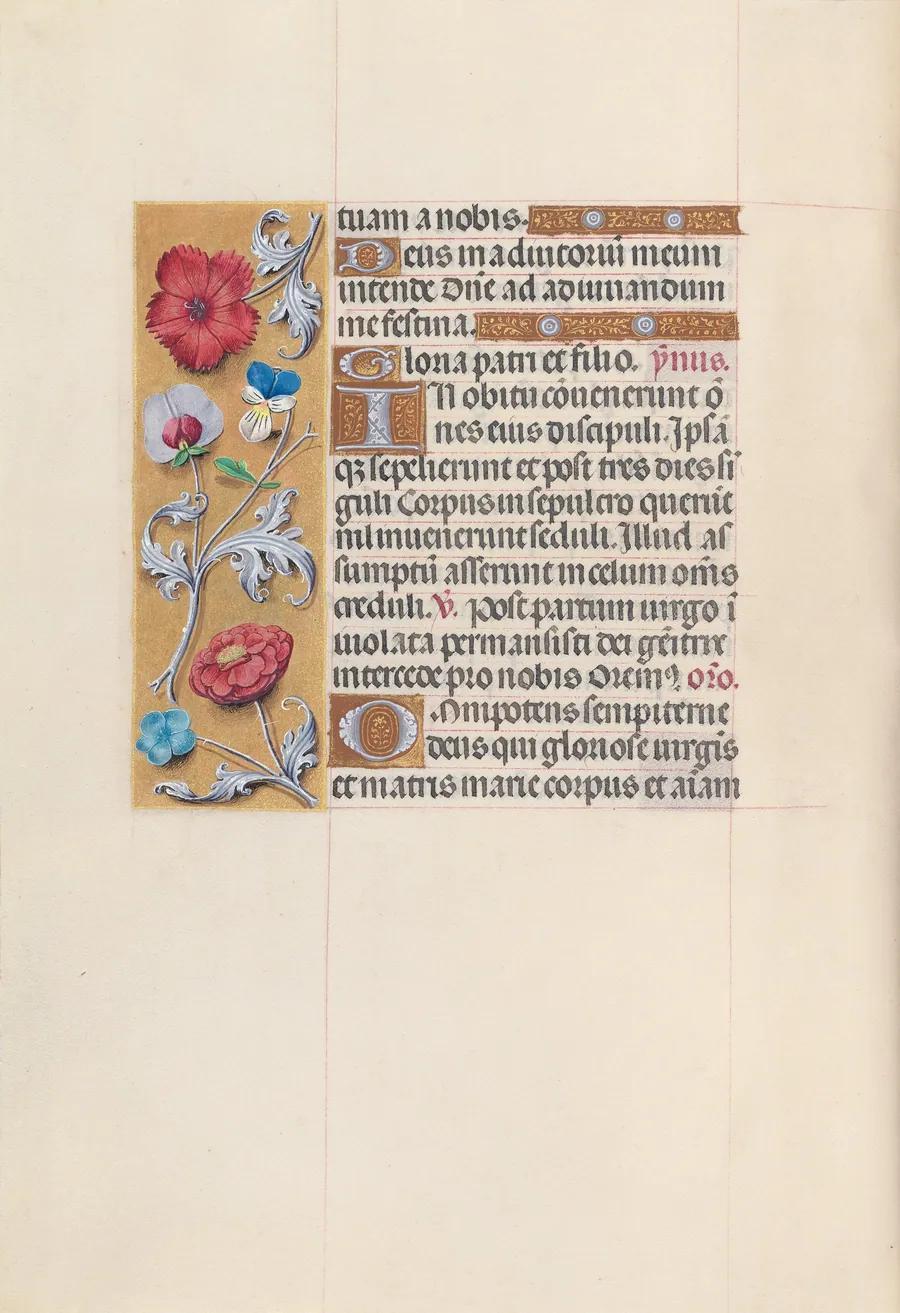 tuam a nobis.
Deus in adiutoriū meum
intende Dn̄e ad adiuuandum
me festina.
Gloria patri et filio. ẏmus.
IN obitu cōuenerunt ō
nes eius discipuli. Ipsā
qꝫ sepelierunt et post tres dies si
guli Corpus in sepulcro querūt
nil inuenerunt seduli. Illud as
sumptū asserunt in celum om̄s
creduli. ℣. Post partum uirgo ī
uiolata permansisti dei gēitrix
intercede pro nobis Oremꝰ. or̄o.
Omnipotens sempiterne
deus qui gloriose uirgīs
et matris marie corpus et aīam